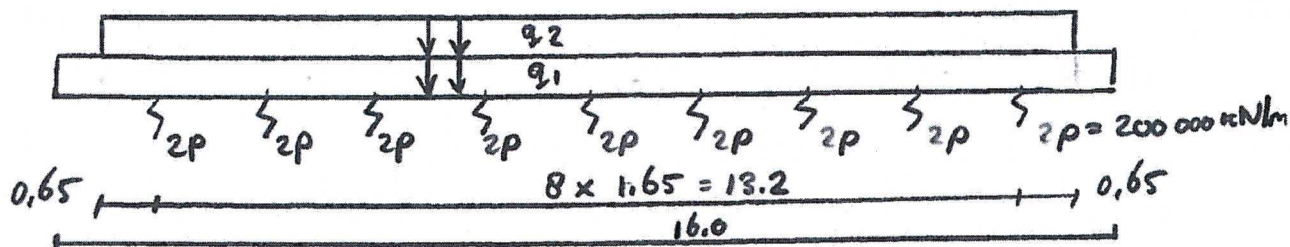 q2
q1
2p 2p 2p 2p 2p 2p 2p 2p 2p = 200 000 kN/m
0,65 8 x 1.65 = 13.2 0,65
16.0